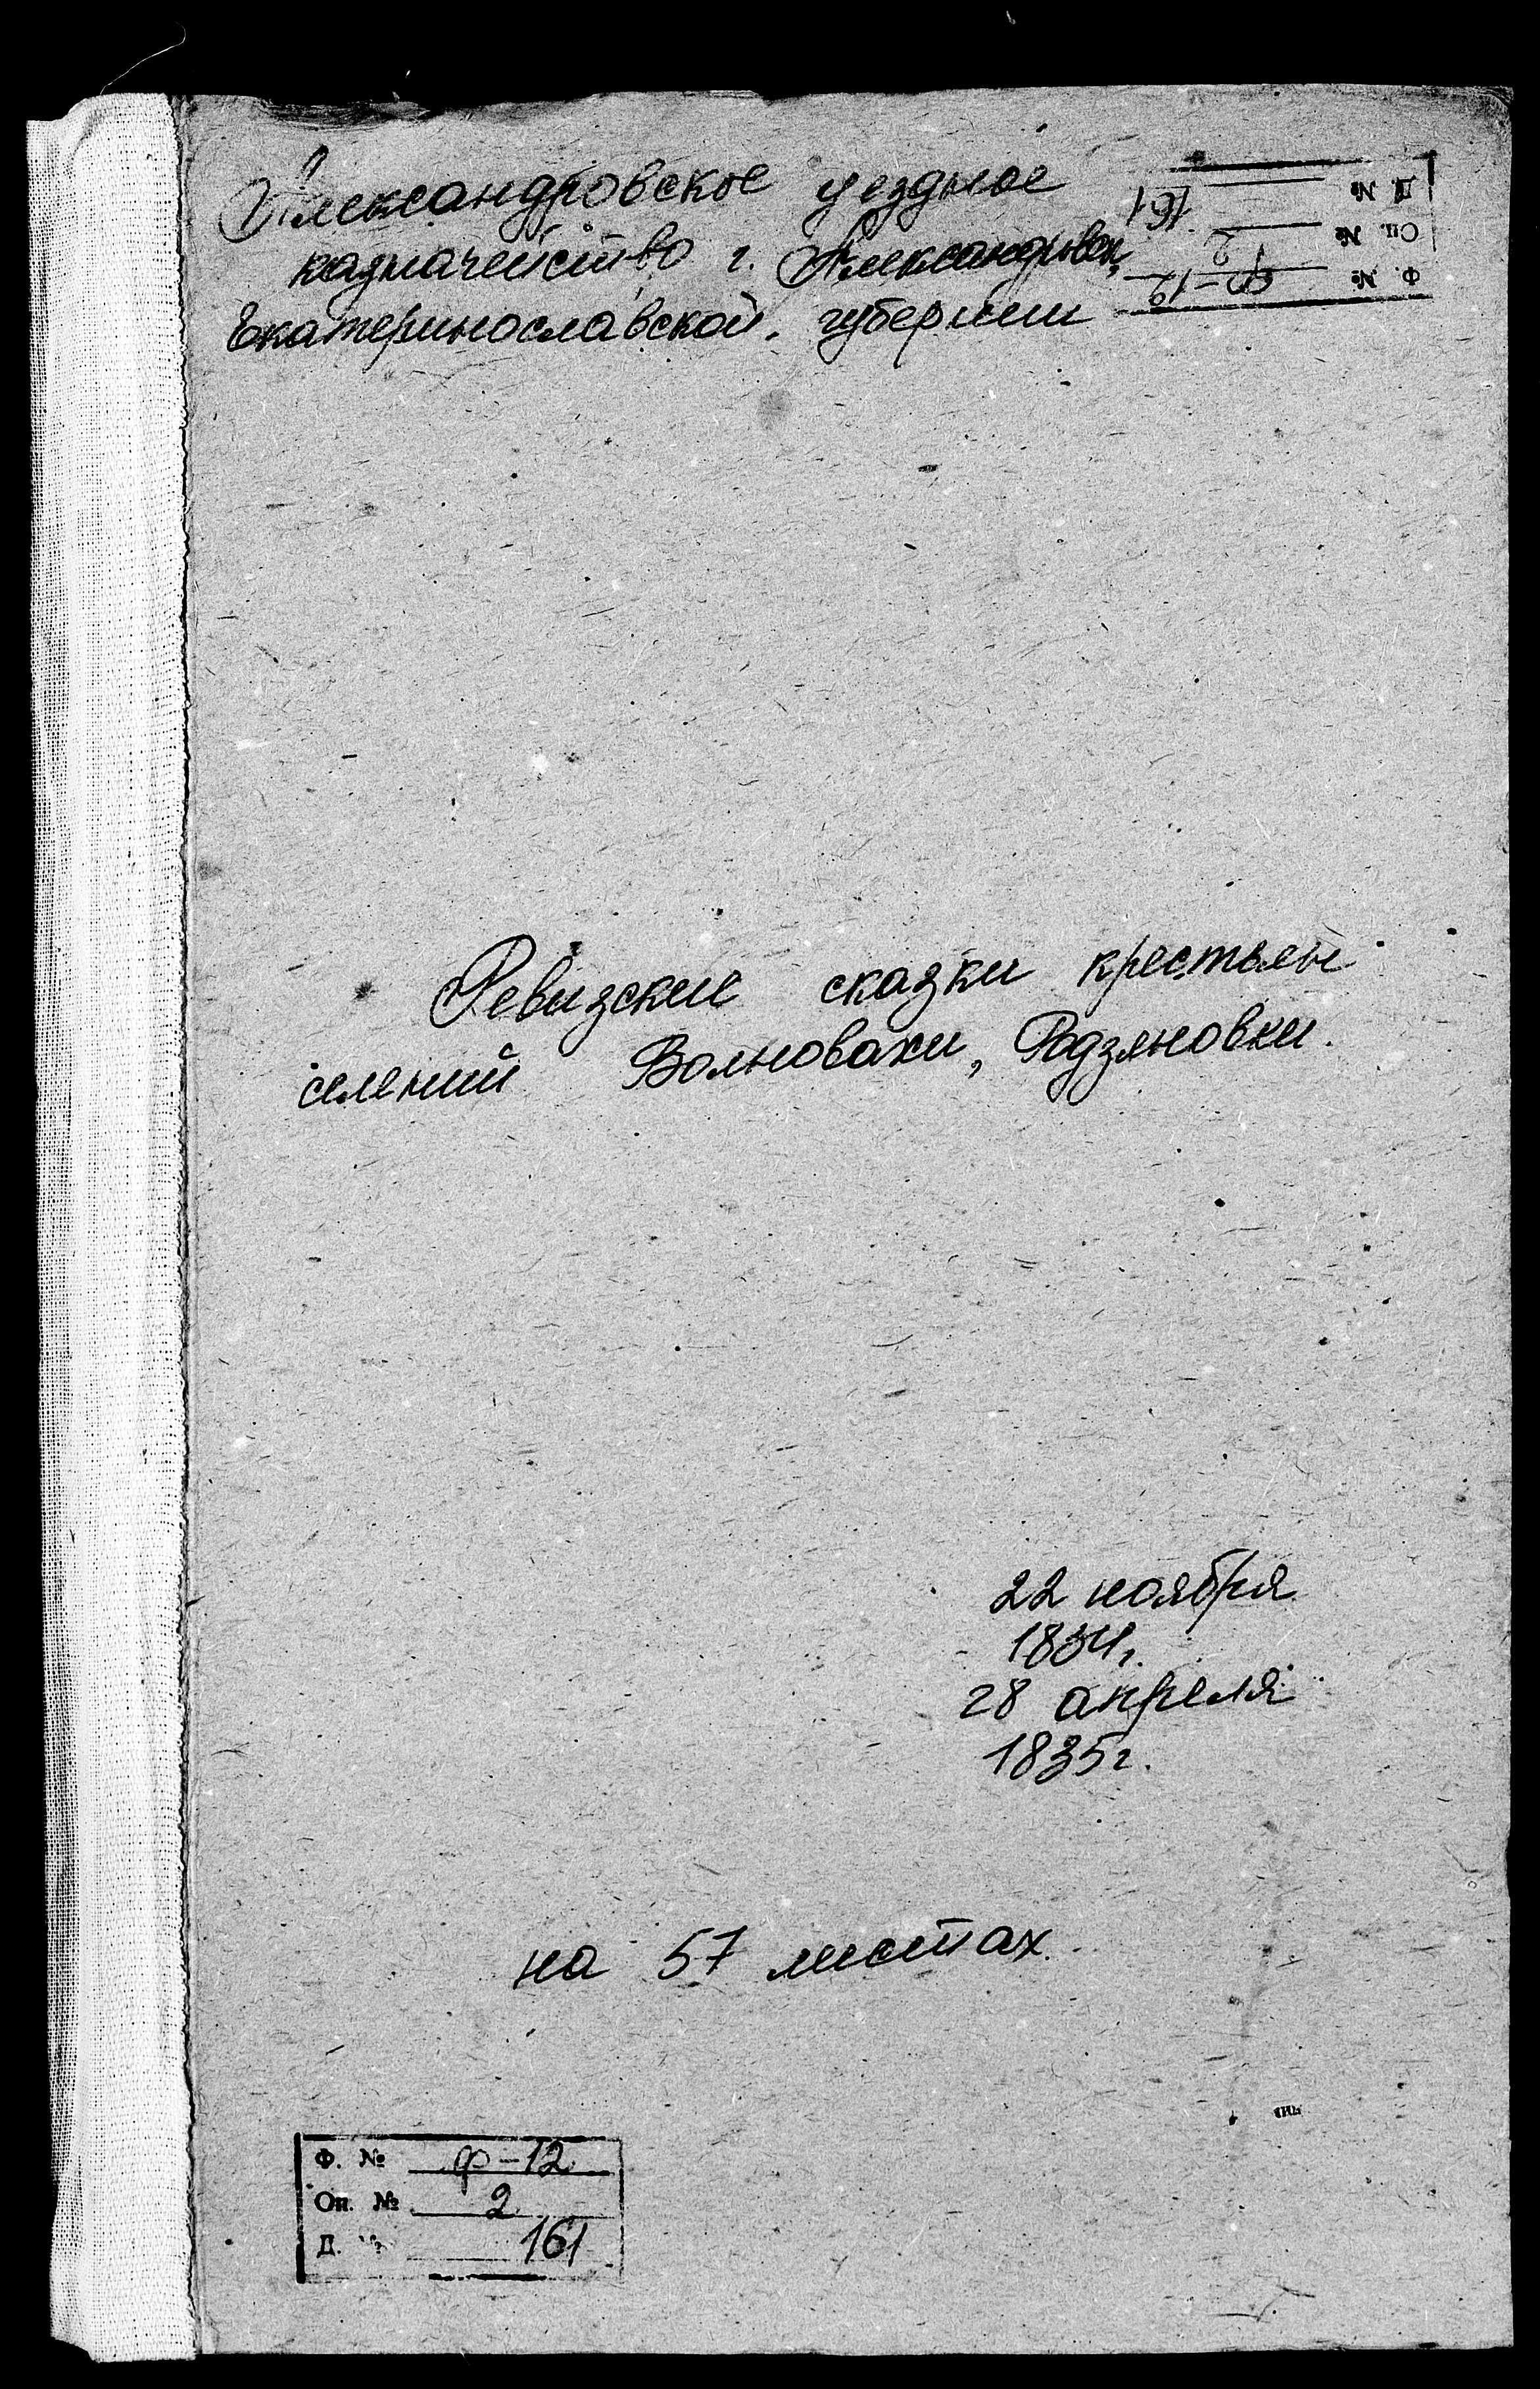 Александровское уездное
казначейство г. Александровск,
Екатеринославской губернии
Д. № 161
Оп. № 2
Ф. № Ф-12
Ревизские сказки крестьян
селений Волновахи, Родзяновки.
22 ноября
1834г.
28 апреля
1835г.
на 57 листах.
Ф. № Ф-12
Оп. № 2
Д. № 161